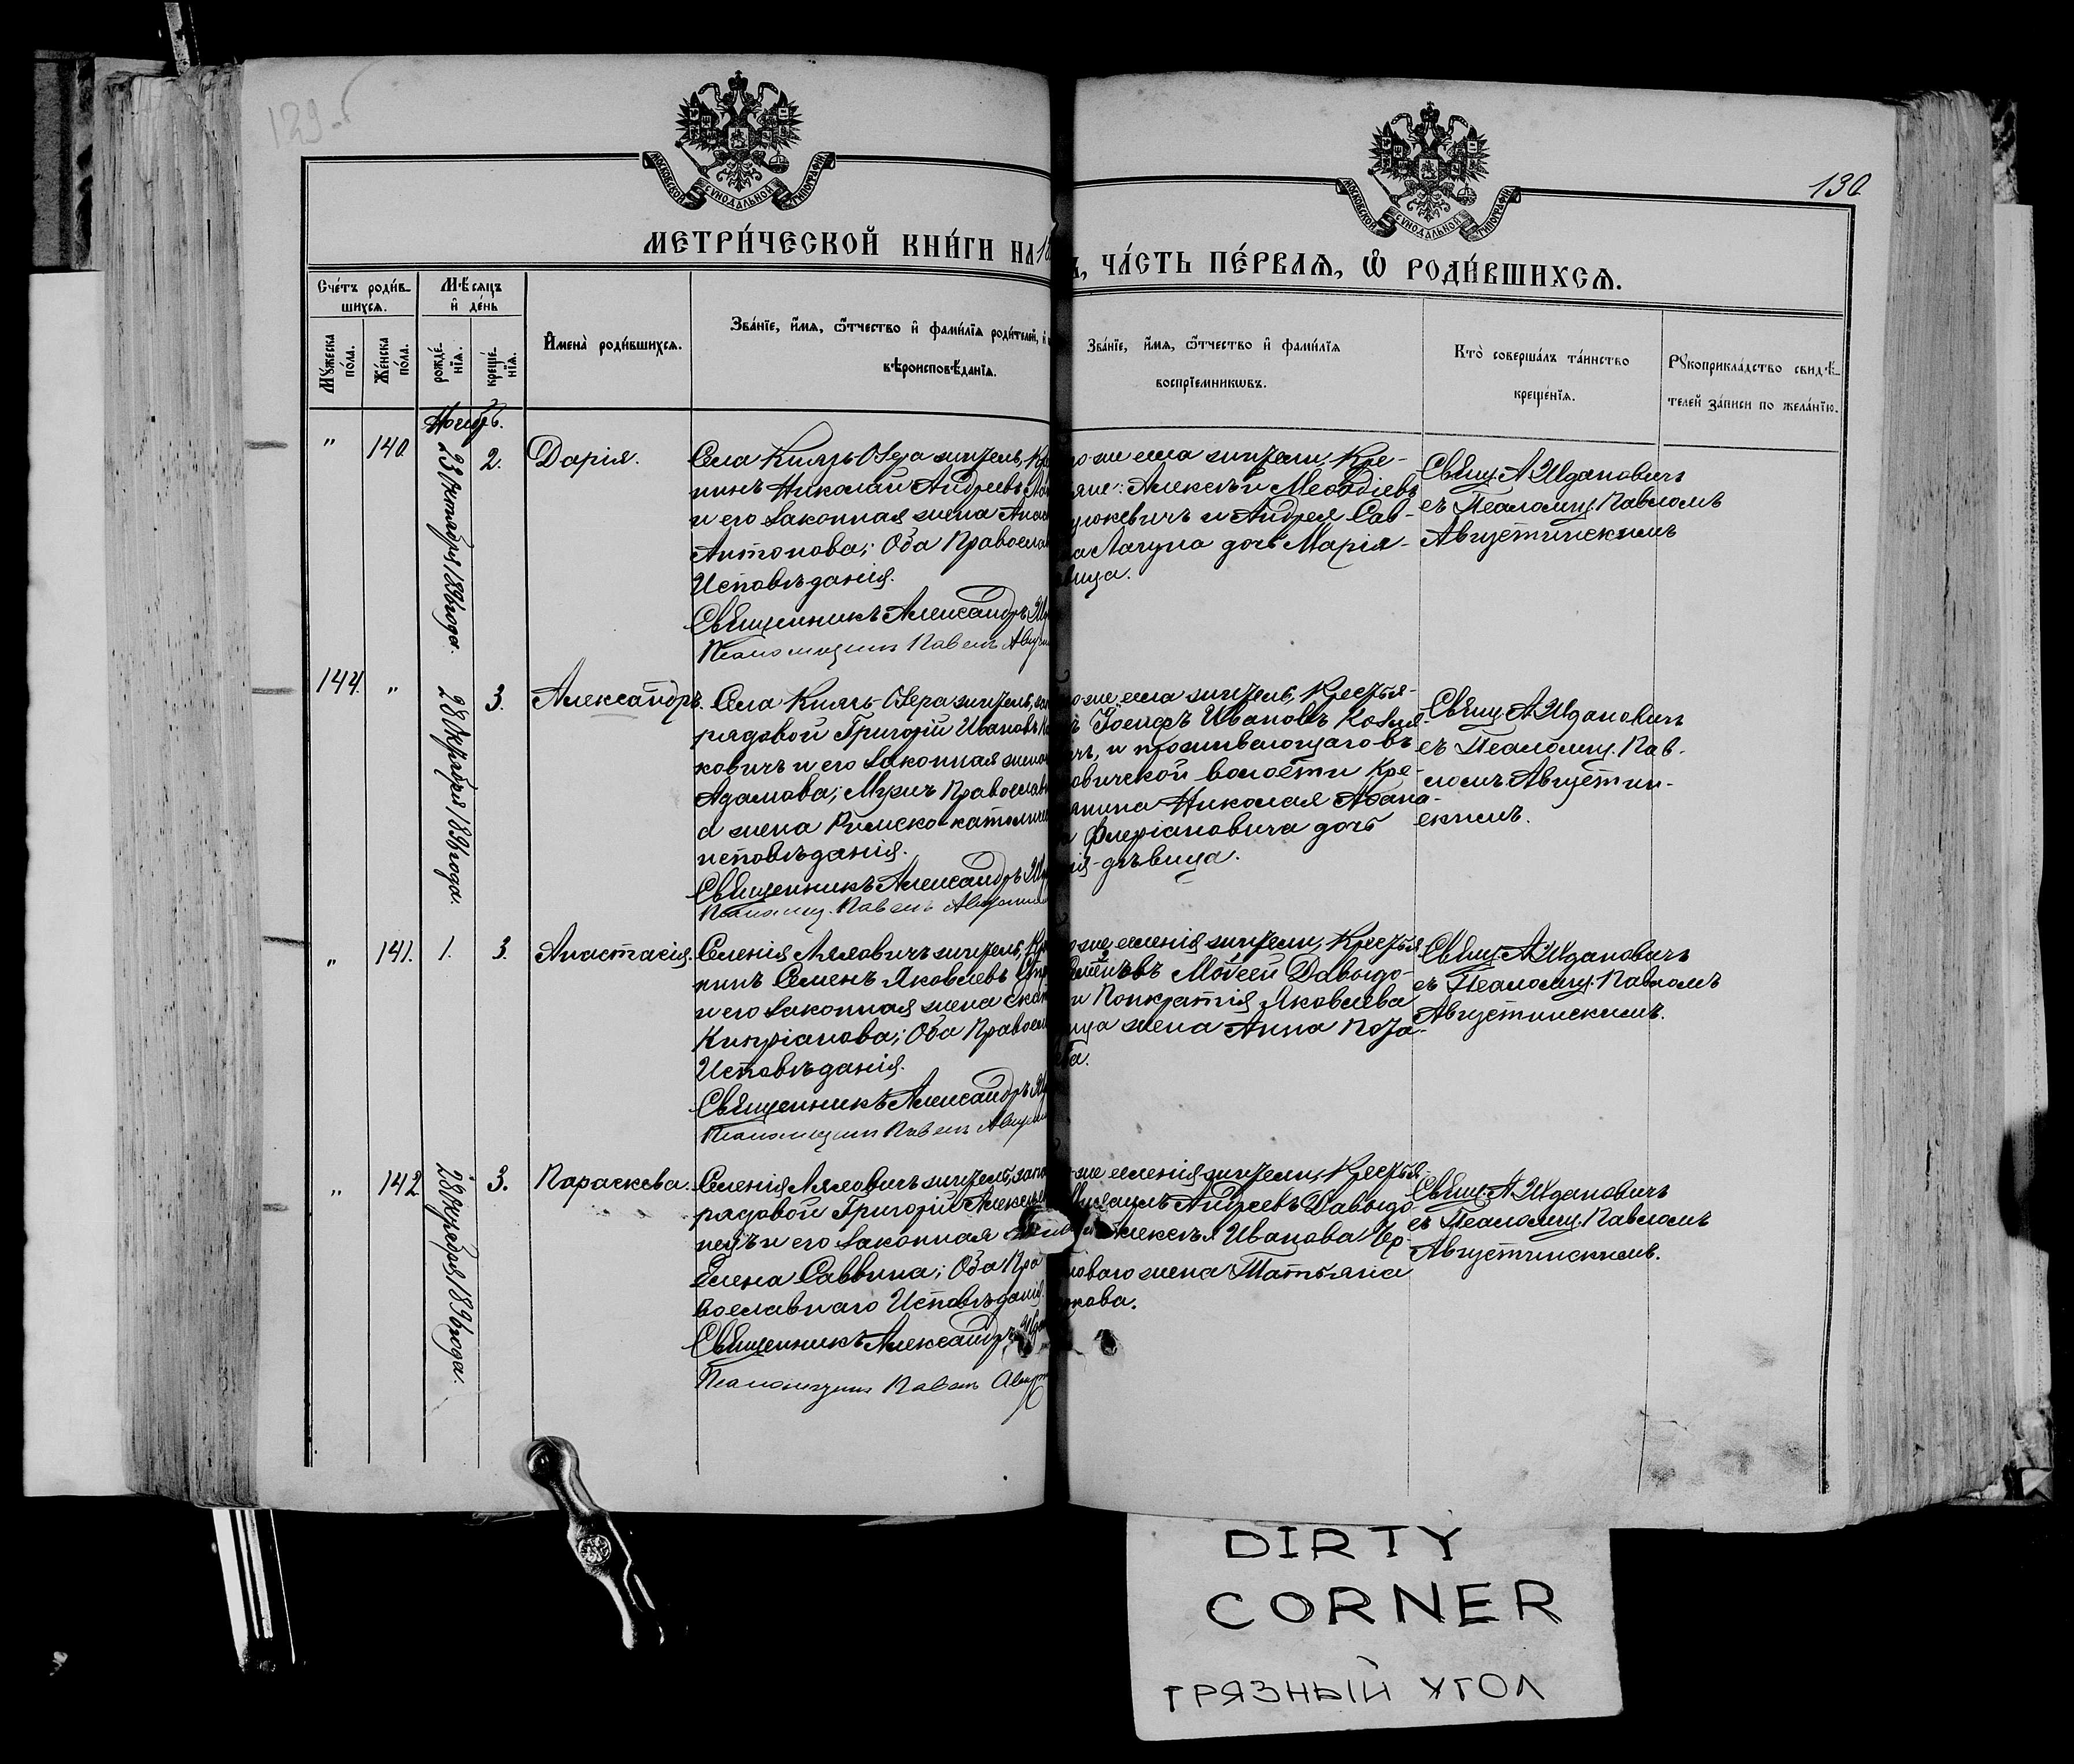 129
130
МОСКОВСКОЙ СУНОДАЛЬНОЙ ТИПОГРАФІИ
МОСКОВСКОЙ СУНОДАЛЬНОЙ ТИПОГРАФІИ
МЕТРИ́ЧЕСКОЙ КНИ́ГИ НА 18
ЧА́СТЬ ПЕ́РВАЯ, Ѽ РОДИ́ВШИХСЯ.
Сче́тъ роди́в-
шихся.
Мѣ́сяцъ
и҆ де́нь
Му́жеска
по́ла.
Же́нска
по́ла.
рожде́-
нія.
креще́-
нія.
И҆мена̀ роди́вшихся.
Зва́нїе, и҆́мя, ѻ҆́тчество и҆ фами́лїя роди́телей, и҆
вѣроисповѣ́данїя.
Зва́нїе, и҆́мя, ѻ҆́тчество и҆ фами́лїя
воспрїе́мникѡвъ.
Кто̀ соверша́лъ та́инство
креще́нїя.
Рукоприкла́дство свидѣ́-
телей за́писи по жела́нїю.
Ноябрь.
" 140. 23 Октября 1896 года. 2. Дарія.
Села Князь-Озера житель, Кре
нинъ Николай Андреевъ Ла
и его законная жена Анас
Антонова; Оба Православ
Исповѣданія.
Священникъ Александръ Жд
Псаломщикъ Павелъ Август
же села жители, Кре-
яне: Алексѣй Меѳодіевъ
укевичъ и Андрея Сав-
Лагуна дочь Марія-
вица.
Свящ. А. Ждановичъ
съ Псаломщ. Павломъ
Августинскимъ
144. " 28 Октября 1896 года. 3. Александръ.
Села Князь-Озера житель, зап
рядовой Григорій Ивановъ
ковичъ и его законная жена
Адамова; Мужъ Православ
а жена Римско-католичес
исповѣданія.
Священникъ Александръ Жд
Псаломщ. Павелъ Августин
же села житель, Крестья-
Іосифъ Ивановъ
и проживающаго въ
овичской волости Кре-
янина Николая
Флеріановича дочь
дѣвица.
Свящ. А. Ждановичъ
съ Псаломщ. Пав-
ломъ Августин-
скимъ.
" 141. 1. 3. Анастасія.
Селенія Лялевичъ житель, Кре
нинъ Семенъ Яковлевъ
и его законная жена
Кипріанова; Оба Правосл
Исповѣданія.
Священникъ Александръ Жд
Псаломщикъ Павелъ Август
же селенія жители, Крестья
Моѵсей Давыдо-
и Панкратія Яковлева
жена Анна
Свящ. А. Ждановичъ
съ Псаломщ. Павломъ
Августинскимъ.
" 142 28 Октября 1896 года. 3. Параскева.
Селенія Лялевичъ житель, запа
рядовой Григорій Алексѣев
нецъ и его законная жена
Елена Саввина; Оба Пра
вославнаго Исповѣданія.
Священникъ Александръ Жда
Псаломщикъ Павелъ Авгус
же селенія жители, Крестья-
Андреевъ Давыдо-
Алексѣя Иванова
жена Татьяна
Свящ. А. Ждановичъ
съ Псаломщ. Павломъ
Августинскимъ.
DIRTY
CORNER
ГРЯЗНЫЙ УГОЛ